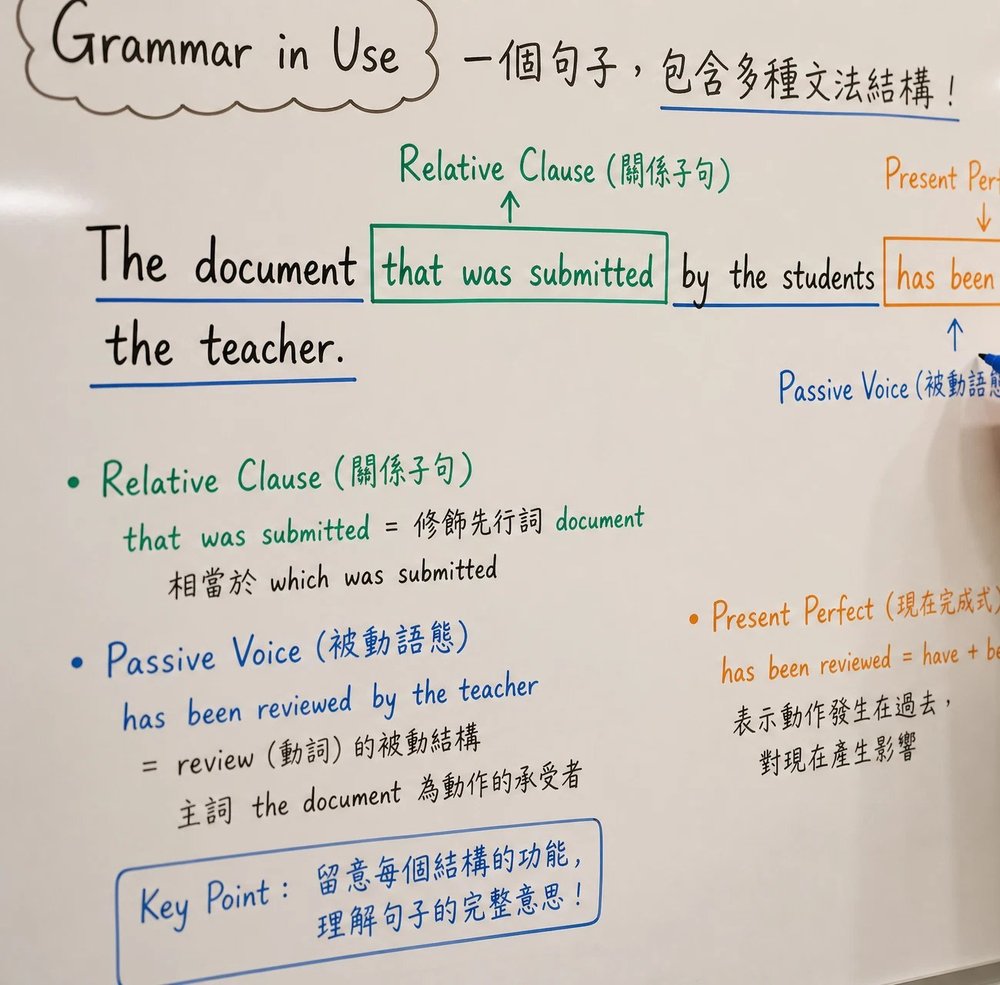 Grammar in Use
一個句子，包含多種文法結構！
Relative Clause (關係子句)
Present
The document that was submitted by the students has been
the teacher.
Passive Voice (被動語態
• Relative Clause (關係子句)
that was submitted = 修飾先行詞 document
相當於 which was submitted
• Passive Voice (被動語態)
has been reviewed by the teacher
= review (動詞) 的被動結構
主詞 the document 為動作的承受者
• Present Perfect (現在完成式)
has been reviewed = have +
表示動作發生在過去，
對現在產生影響
Key Point： 留意每個結構的功能，
理解句子的完整意思！